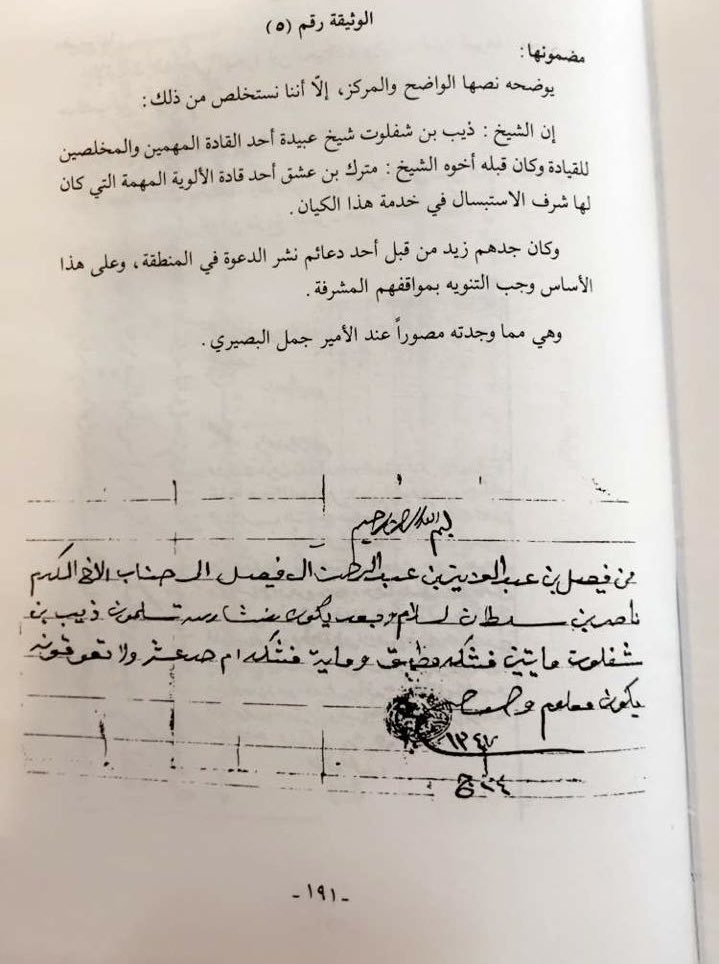 الوثيقة رقم (٥)
مضمونها:
يوضحه نصها الواضح والمركز، إلّا أننا نستخلص من ذلك:
إن الشيخ: ذيب بن شفلوت شيخ عبيدة أحد القادة المهمين والمخلصين
للقيادة وكان قبله أخوه الشيخ: مترك بن عشق أحد قادة الألوية المهمة التي كان
لها شرف الاستبسال في خدمة هذا الكيان.
وكان جدهم زيد من قبل أحد دعائم نشر الدعوة في المنطقة، وعلى هذا
الأساس وجب التنويه بمواقفهم المشرفة.
وهي مما وجدته مصوراً عند الأمير جمل البصيري.
بسم الله الرحمن الرحيم
من فيصل بن عبد العزيز بن عبد الرحمن ال فيصل الى جناب الاخ المكرم
ناصر بن سلطان السلام وبعد يكون تسلمون ذيب بن
شفلوت مايتين فشكه ومايه فشكه ام ولا تعوقونه
يكون معلوم و
١٣٤٧
٢٤ ج
-١٩١-